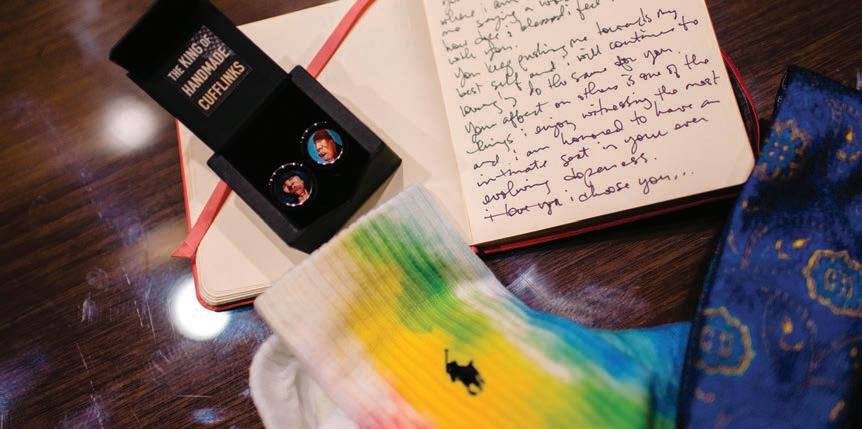 THE KING OF
HANDMADE
CUFFLINKS
where i am
me saying a
how does i blessed i feel
with you.
You keep pushing me towards my
best self and i will continue to
to do the same for you.
You affect on others is one of the
things i enjoy witnessing the most
and i am honored to have an
intimate seat in your ever
evolving dopeness.
i love you i choose you...